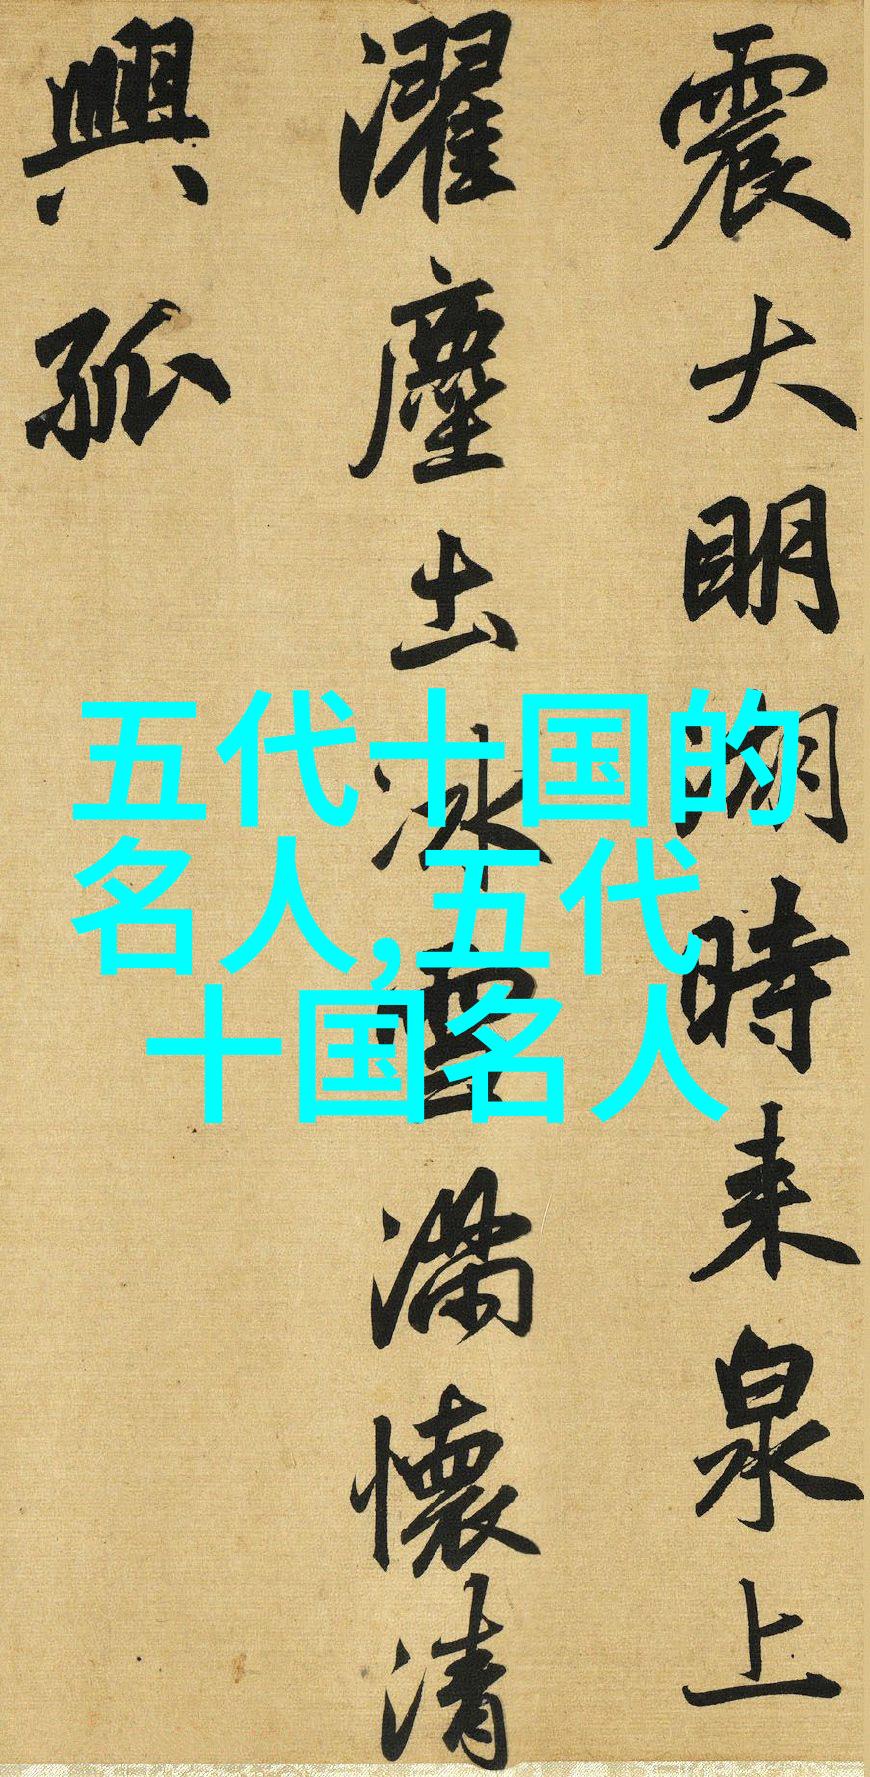 震大明湖時来泉上
濯塵土冰雪滿懷清
興孤
五代十国的
名人,五代
十国名人